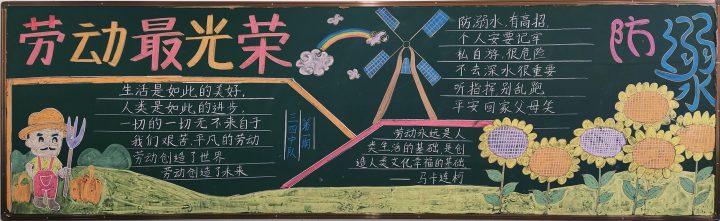 劳动最光荣
生活是如此的美好,
人类是如此的进步,
一切的一切无不来自于
我们艰苦平凡的劳动
劳动创造了世界
劳动创造了未来
三四中队
防溺水,有高招,
个人安要记牢
私自游,很危险
不去深水很重要
听指挥别乱跑
平安回家父母笑
劳动永远是人
类生活的基础,是创
造人类文化幸福的基础
——马卡连柯
防溺水